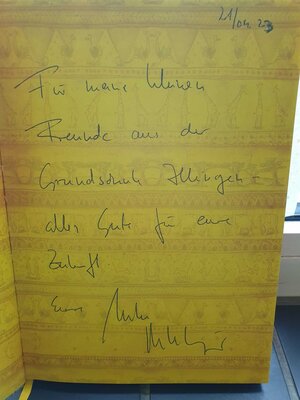 21/04.23
Für meine kleinen
Freunde aus der
Grundschule Illingen -
alles Gute für eure
Zukunft
Eure